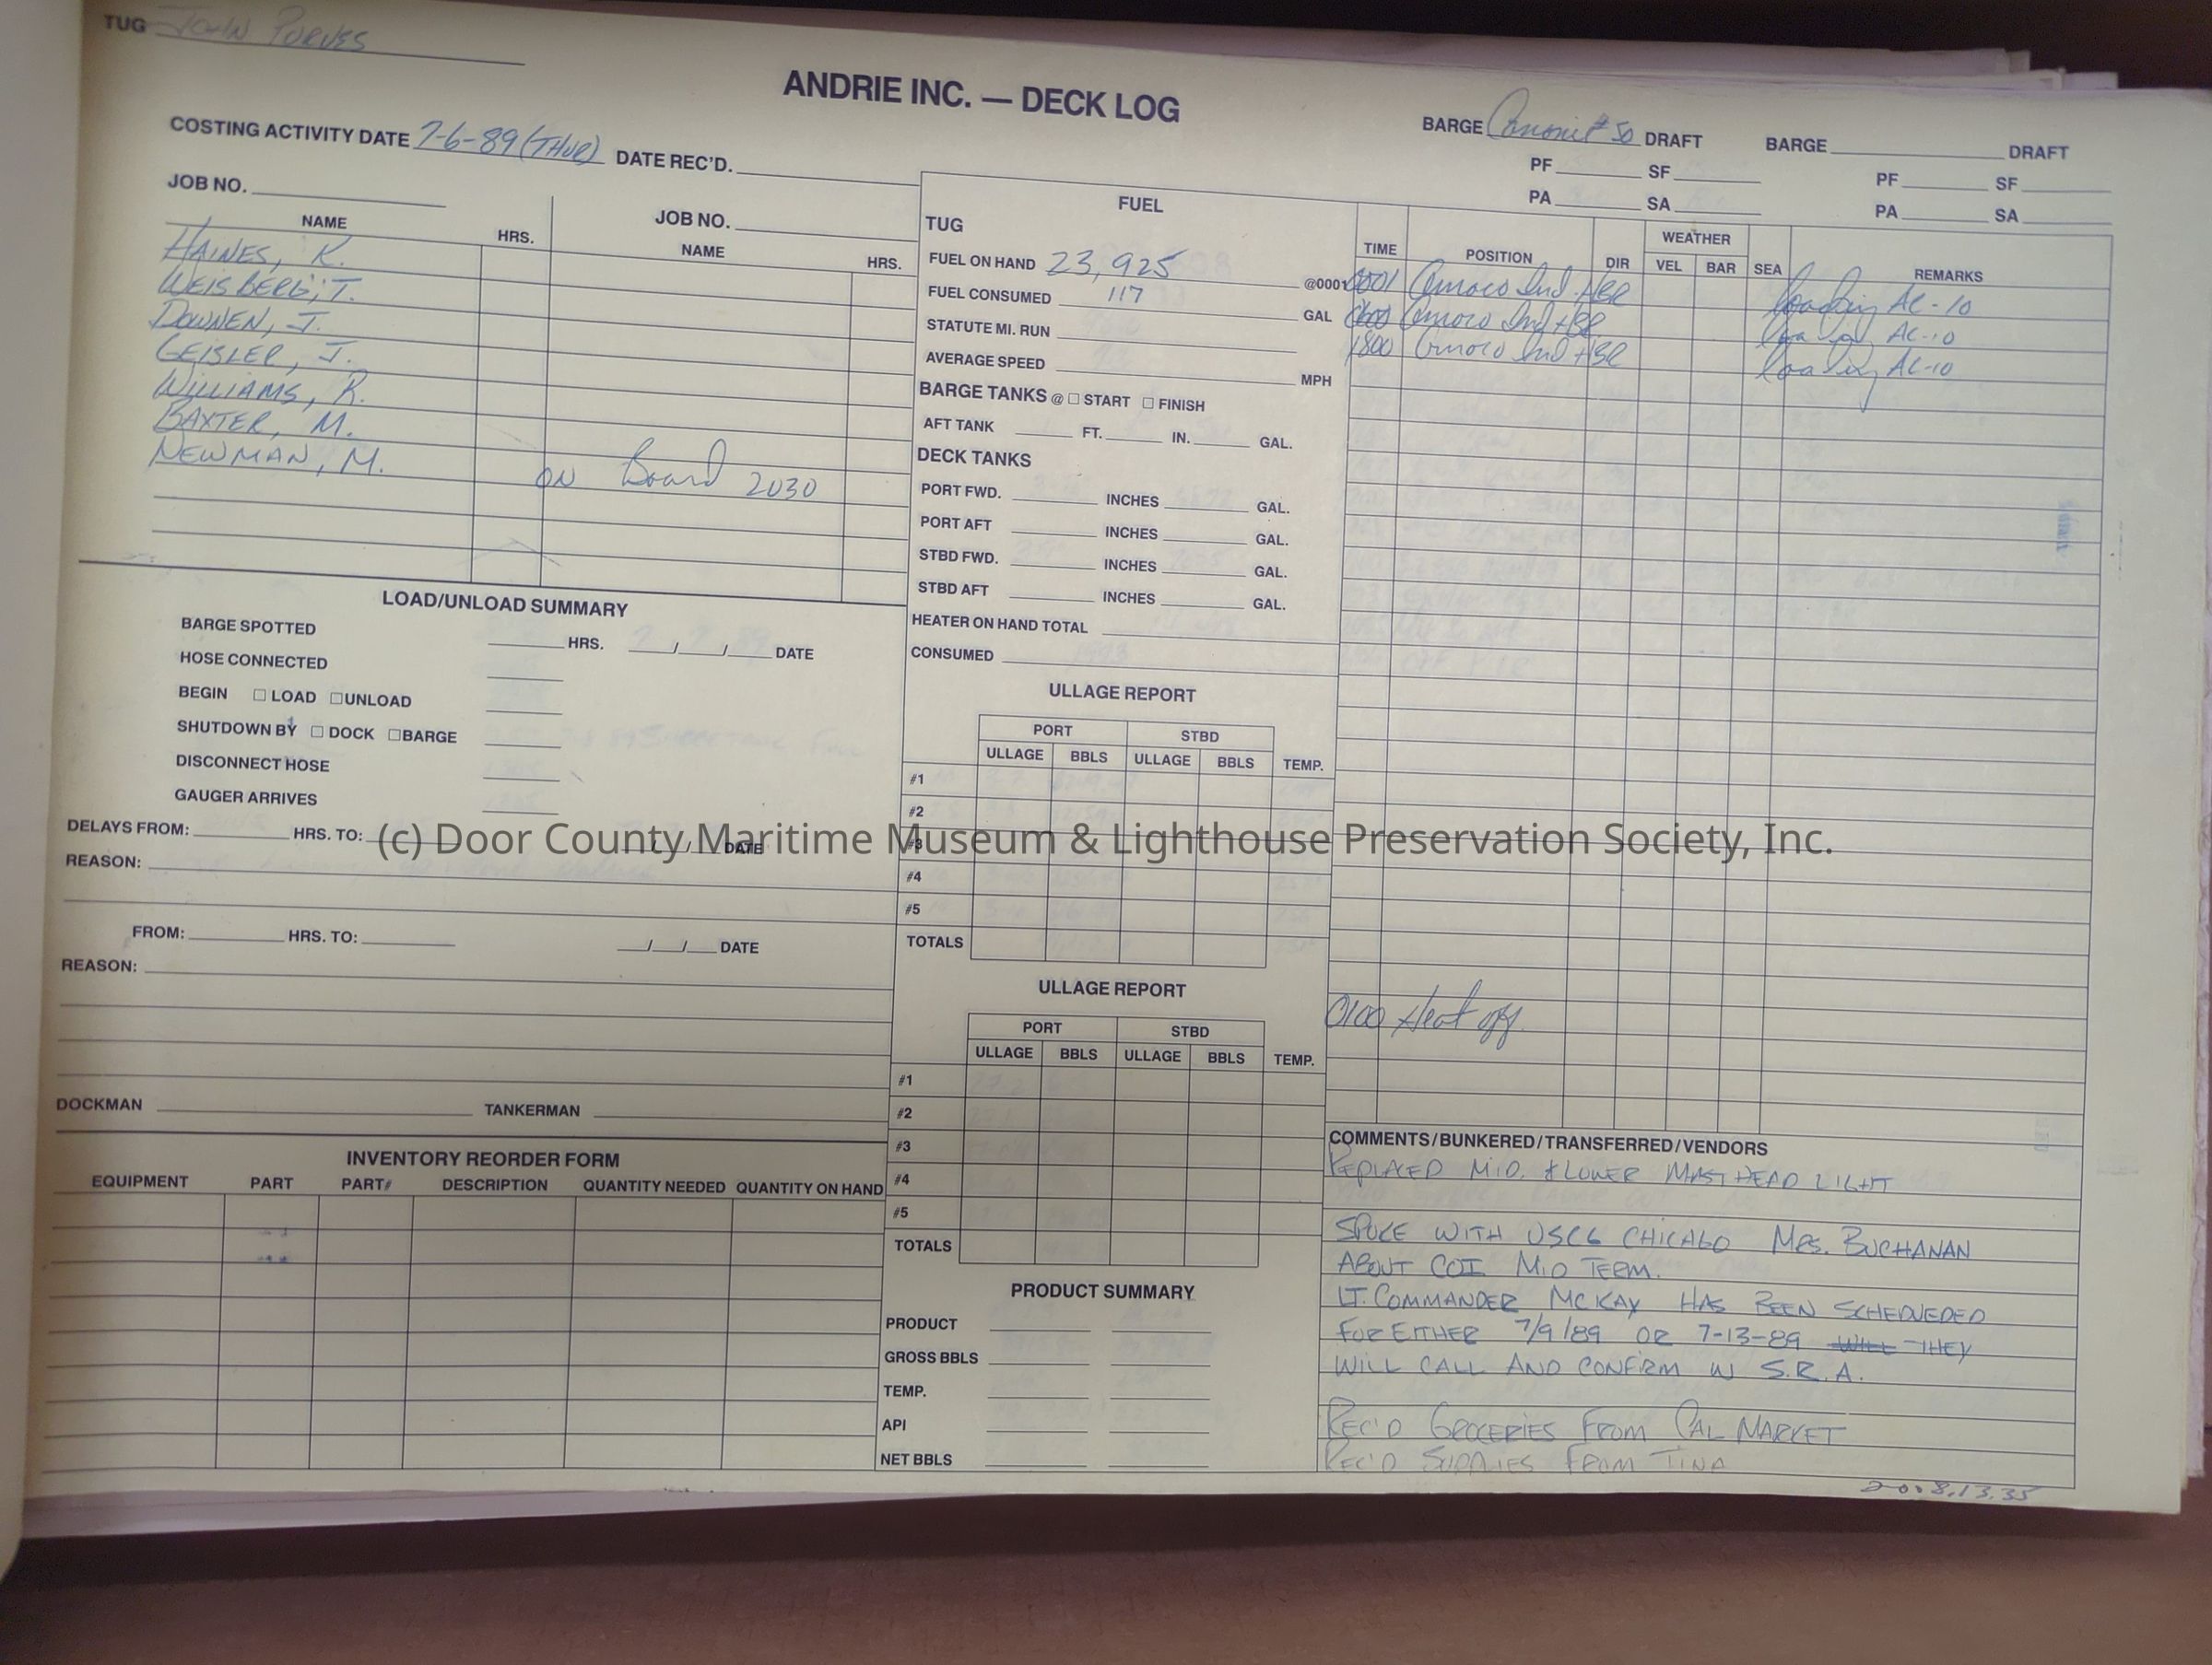 TUG JOHN PURVES
ANDRIE INC. — DECK LOG
COSTING ACTIVITY DATE 7-6-89 (THUR) DATE REC'D.
BARGE #50 DRAFT BARGE DRAFT
PF SF PF SF
PA SA PA SA
JOB NO. JOB NO.
NAME HRS. NAME HRS.
HAINES, K.
WEISBERG, T.
DOWNEN, J.
GEISLER, J.
WILLIAMS, R.
BAXTER, M.
NEWMAN, M. ON Board 2030
LOAD/UNLOAD SUMMARY
BARGE SPOTTED HRS. / / DATE
HOSE CONNECTED
BEGIN ☐ LOAD ☐ UNLOAD
SHUTDOWN BY ☐ DOCK ☐ BARGE
DISCONNECT HOSE
GAUGER ARRIVES
DELAYS FROM: HRS. TO: / / DATE
REASON:
FROM: HRS. TO: / / DATE
REASON:
DOCKMAN TANKERMAN
INVENTORY REORDER FORM
EQUIPMENT PART PART# DESCRIPTION QUANTITY NEEDED QUANTITY ON HAND
FUEL
TUG
FUEL ON HAND 23,925 @0001
FUEL CONSUMED 117 GAL
STATUTE MI. RUN
AVERAGE SPEED MPH
BARGE TANKS @ ☐ START ☐ FINISH
AFT TANK FT. IN. GAL.
DECK TANKS
PORT FWD. INCHES GAL.
PORT AFT INCHES GAL.
STBD FWD. INCHES GAL.
STBD AFT INCHES GAL.
HEATER ON HAND TOTAL
CONSUMED
ULLAGE REPORT
PORT STBD
ULLAGE BBLS ULLAGE BBLS TEMP.
#1
#2
#3
#4
#5
TOTALS
ULLAGE REPORT
PORT STBD
ULLAGE BBLS ULLAGE BBLS TEMP.
#1
#2
#3
#4
#5
TOTALS
PRODUCT SUMMARY
PRODUCT
GROSS BBLS
TEMP.
API
NET BBLS
WEATHER
TIME POSITION DIR VEL BAR SEA REMARKS
0001 Amoco Ind HBR loading AC-10
0600 Amoco Ind HBR loading AC-10
1800 Amoco Ind HBR loading AC-10
0100 Heat off
COMMENTS/BUNKERED/TRANSFERRED/VENDORS
REPLACED MID. & LOWER MASTHEAD LIGHT
SPOKE WITH USCG CHICAGO MRS. BUCHANAN
ABOUT COI MID TERM.
LT. COMMANDER MCKAY HAS BEEN SCHEDUEDED
FOR EITHER 7/9/89 OR 7-13-89 WILL THEY
WILL CALL AND CONFIRM W S.R.A.
REC'D GROCERIES FROM CAL MARKET
REC'D SUPPLIES FROM TINA
2008.13.35
(c) Door County Maritime Museum & Lighthouse Preservation Society, Inc.